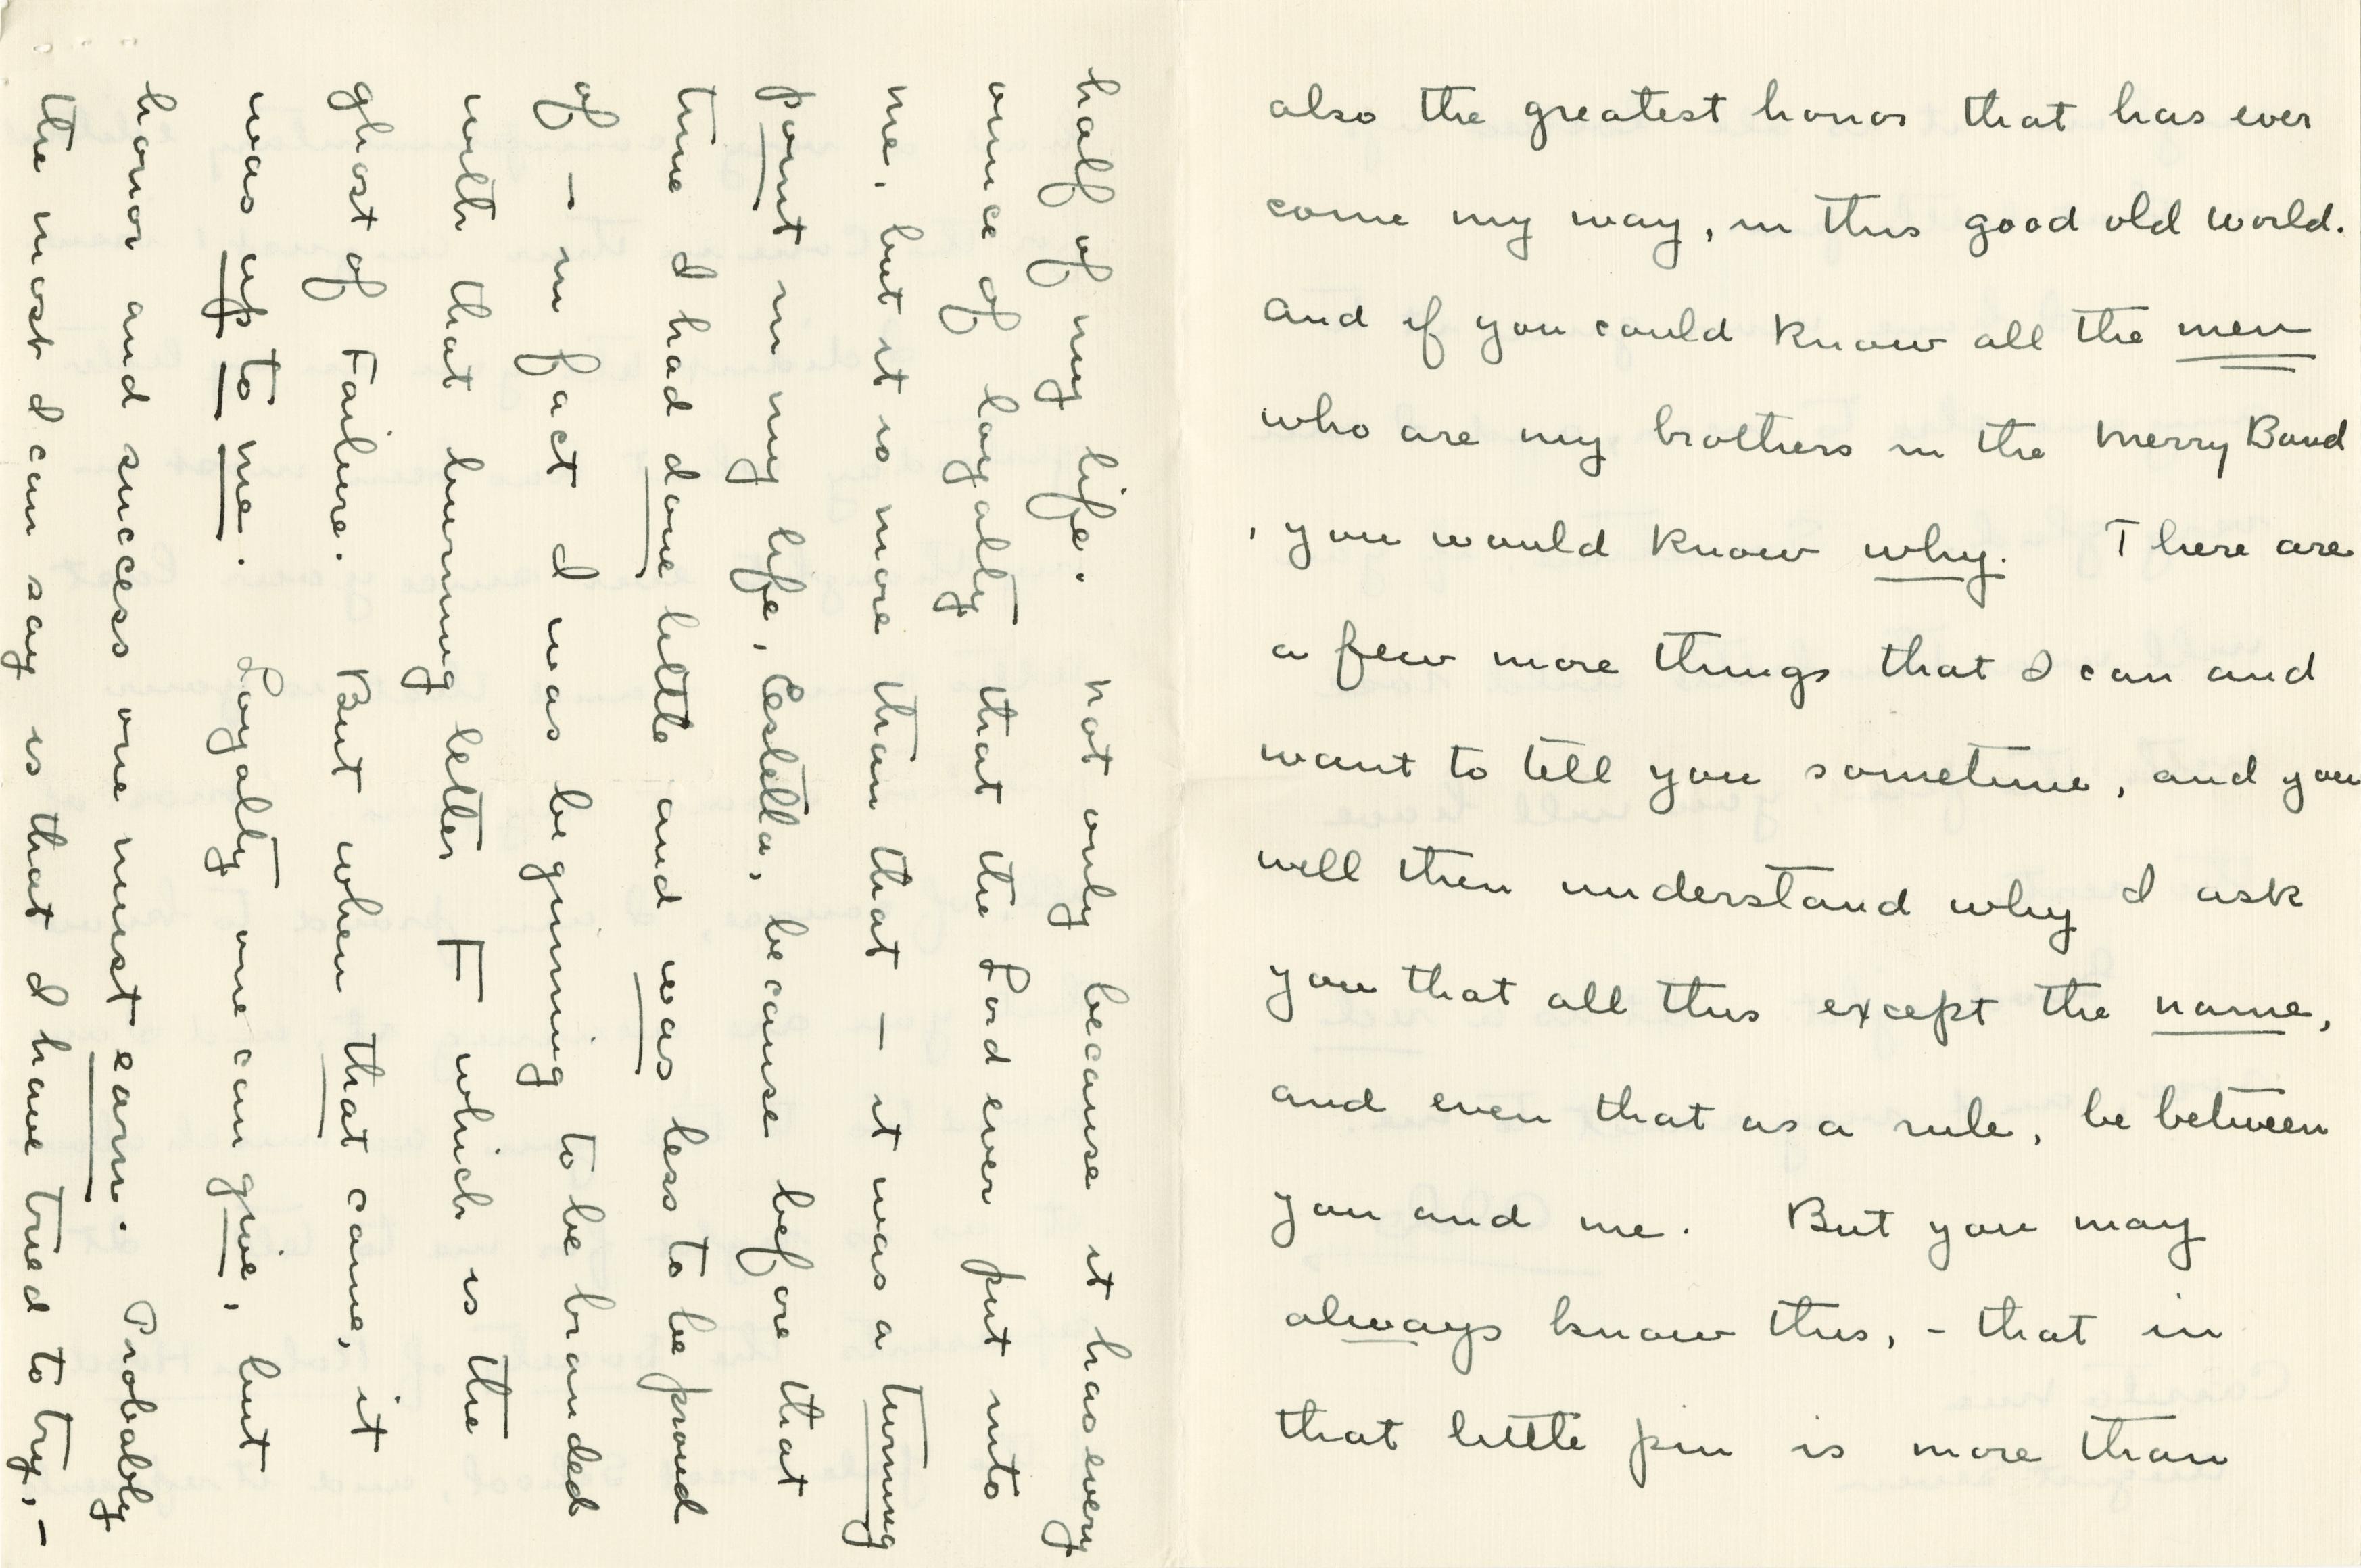 also the greatest honor that has ever
come my way, in this good old world.
and if you could know all the men
who are my brothers in the Merry Band
, you would know why. There are
a few more things that I can and
want to tell you sometime, and you
will then understand why I ask
you that all this except the name,
and even that as a rule, be between
you and me. But you may
always know this, - that in
that little pin is more than
half of my life. not only because it has every
ounce of loyalty that the Lord ever put into
me, but it is more than that - it was a turning
point in my life, Estella, because before that
time I had done little and was less to be proud
of - in fact I was beginning to be branded
with that burning letter F which is the
ghost of Failure. But when that came, it
was up to me. Loyalty one can give, but
honor and success one must earn. Probably
the most I can say is that I have tried to try, -